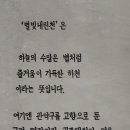 '별빛내린천' 은
하늘의 수많은 별처럼
즐거움이 가득한 하천
이라는 뜻입니다.
여기엔 관악구를 고향으로 둔